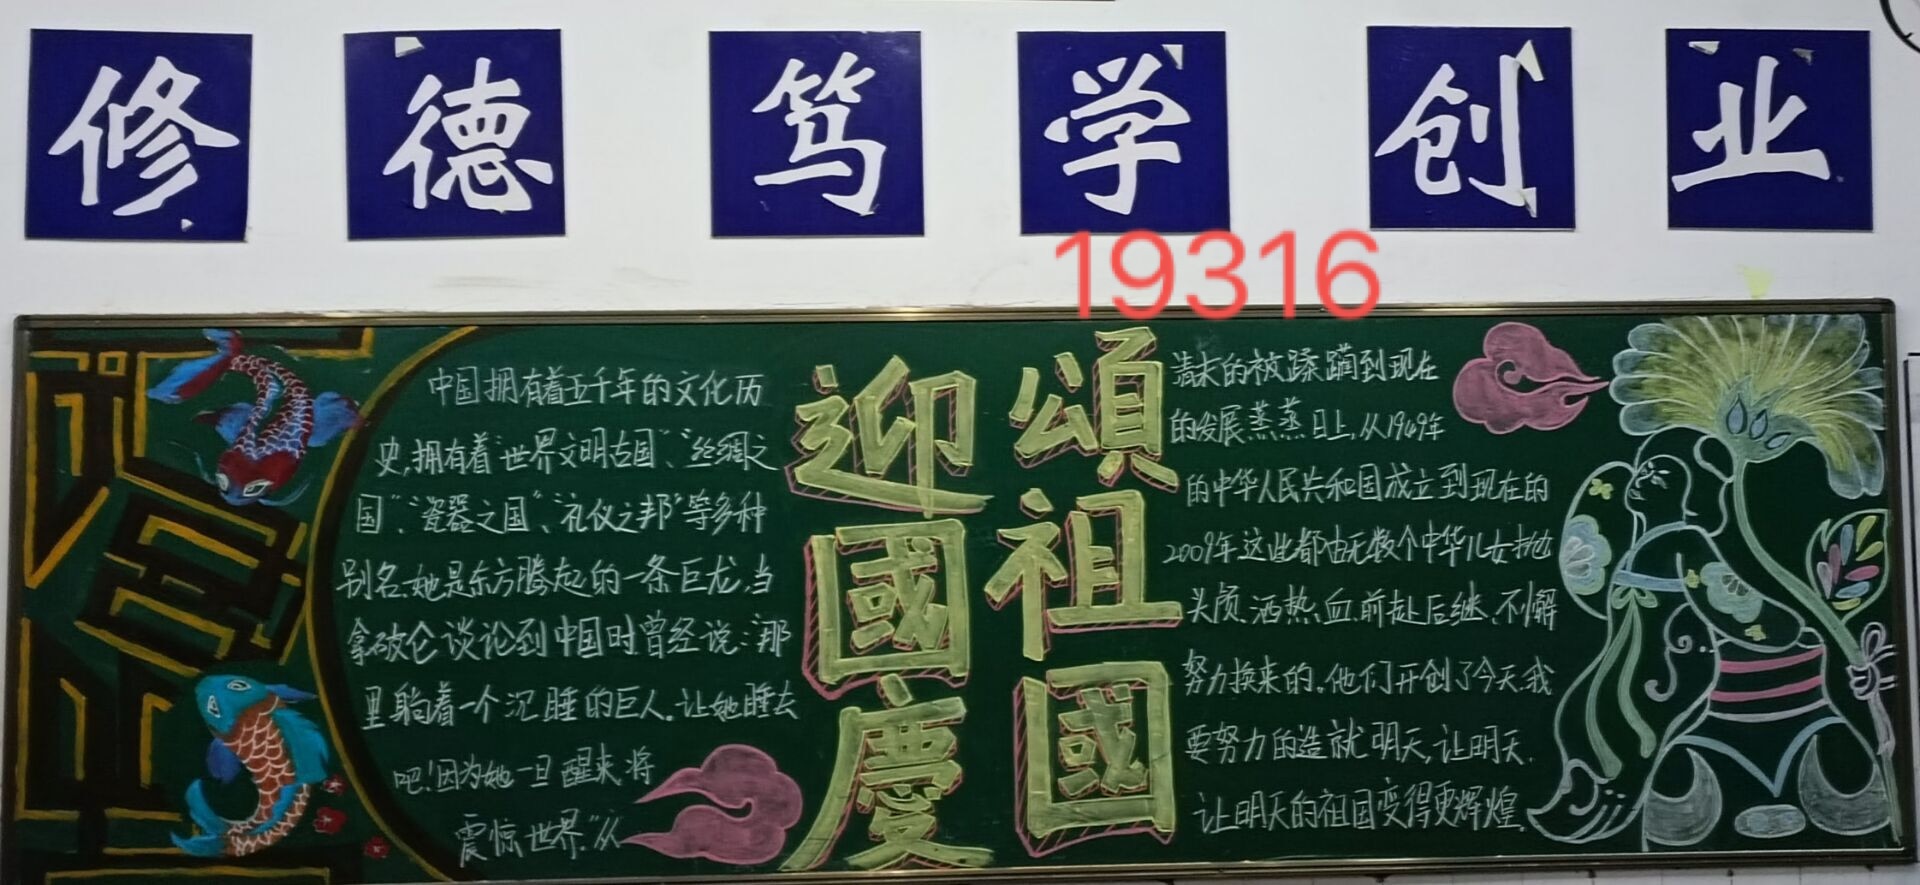 修 德 笃 学 创 业
19316
中国拥有着五千年的文化历
史,拥有着“世界文明古国”、“丝绸之
国”、“瓷器之国”、“礼仪之邦”等多种
别名.她是东方腾起的一条巨龙,当
拿破仑谈论到中国时曾经说:“那
里躺着一个沉睡的巨人.让她睡去
吧!因为她一旦醒来,将
震惊世界.”从
迎國慶
頌祖國
清末的被蹂躏到现在
的发展蒸蒸日上,从1949年
的中华人民共和国成立到现在的
2009年这些都由无数个中华儿女抛
头颅.洒热血.前赴后继、不懈
努力换来的。他们开创了今天.我
要努力的造就明天,让明天.
让明天的祖国变得更辉煌.